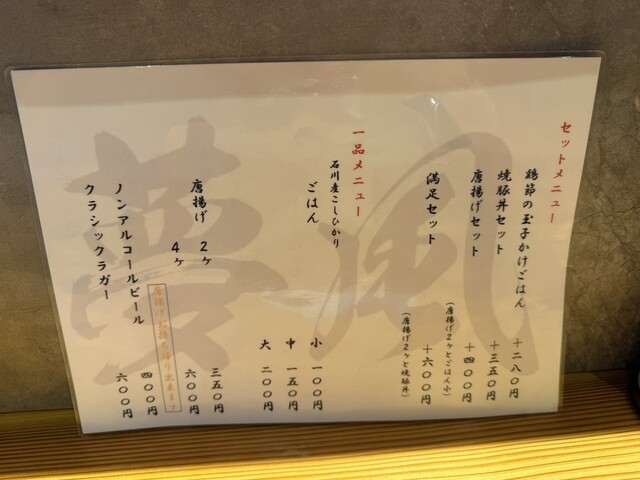 セットメニュー
鶏節の玉子かけごはん +二八〇円
焼豚丼セット +三五〇円
唐揚げセット +四〇〇円
(唐揚げ2ヶとごはん小)
満足セット +六〇〇円
(唐揚げ2ヶと焼豚丼)
一品メニュー
石川産こしひかり
ごはん
小 一〇〇円
中 一五〇円
大 二〇〇円
唐揚げ 2ヶ 三五〇円
4ヶ 六〇〇円
唐揚げお持ち帰り出来ます
ノンアルコールビール 四〇〇円
クラシックラガー 六〇〇円
風
夢